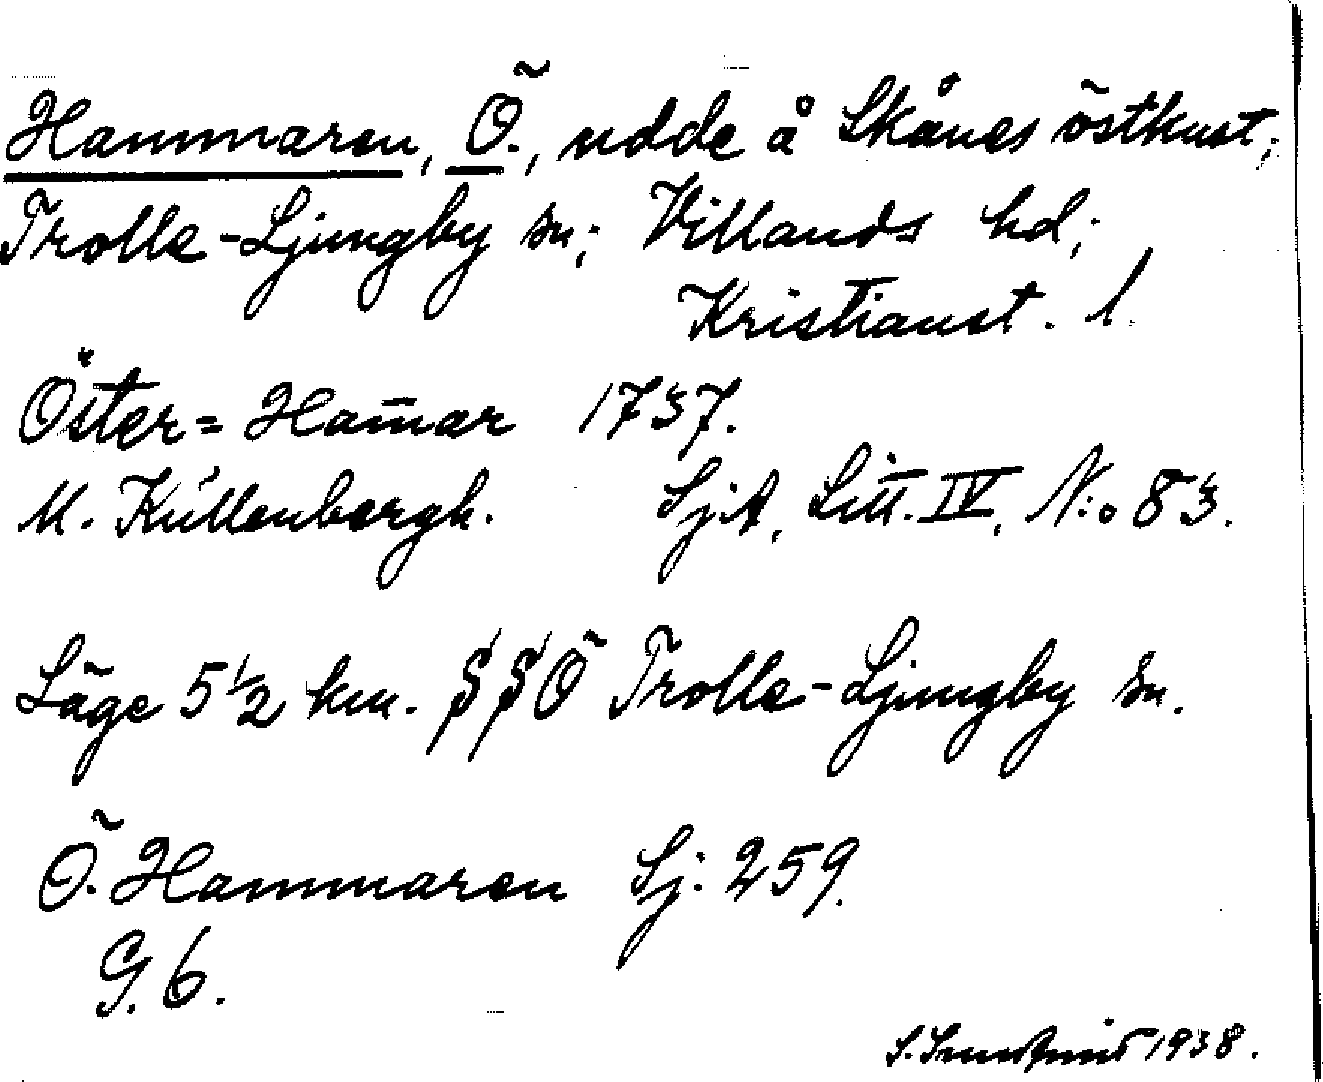 Hammaren, Ö., udde å Skånes östkust;
Trolle-Ljungby sn; Villands hd;
Kristianst. l.
Öster= Ham̄ar 1737.
M. Küllenbergh. SjA, Litt. IV, N:o 83.
Läge 5½ km. SSÖ Trolle-Ljungby sn.
Ö. Hammaren Sj: 259.
G. 6.
S. 1938.